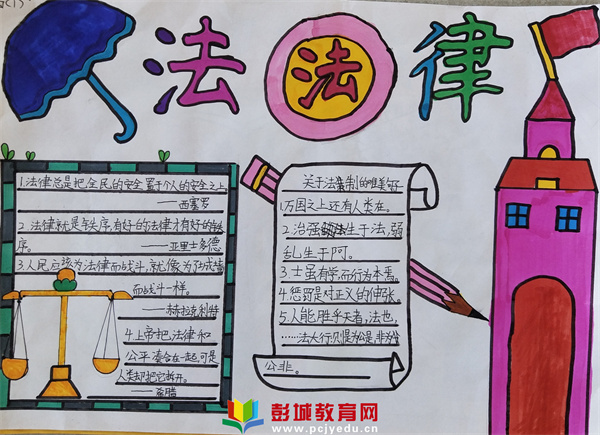 法 法 律
1.法律总是把全民的安全置于个人的安全之上
——西塞罗
2.法律就是秩序,有好的法律才有好的秩
序。 ——亚里士多德
3.人民应该为法律而战斗,就像为了城墙
而战斗一样。
——赫拉克利特
4.上帝把法律和
公平凑合在一起,可是
人类却把它拆开。
——希腊
关于法制的唯美句子
1.万国之上还有人类在。
2.治强生于法,弱
乱生于阿。
3.士虽有学,而行为本焉。
4.惩罚是对正义的伸张。
5.人能胜乎天者,法也,
……法大行,贝是为公是,非为
公非。
彭城教育网
www.pcjyedu.cn